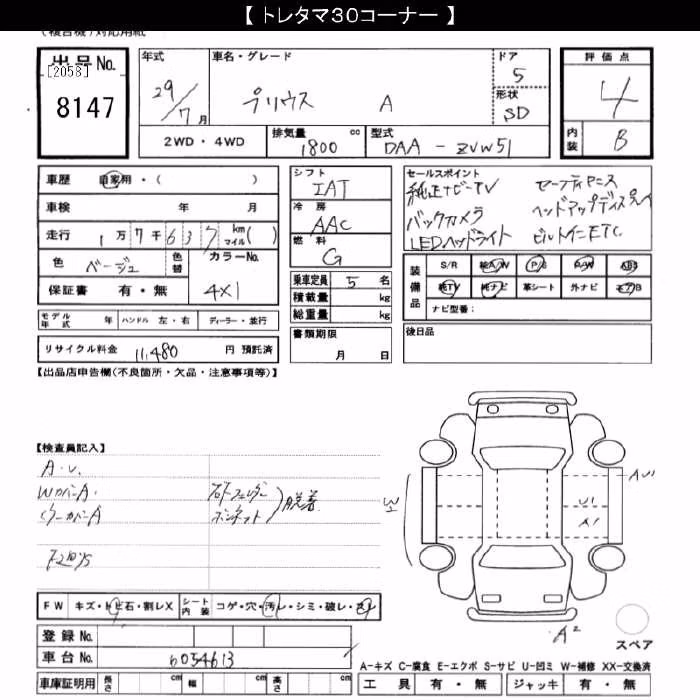 【 トレタマ30コーナー 】
出品No.
[2058]
8147
年式
29/7月
車名・グレード
プリウス A
ドア
5
形状
SD
評価点
4
内装
B
2WD・4WD
排気量
1800 cc
型式
DAA-ZVW51
車歴 自家用・( )
車検 年 月
走行 1万7千637 km マイル( )
色 ベージュ 色替
カラーNo.
4X1
保証書 有・無
シフト
IAT
冷房
AAC
燃料
G
乗車定員 5 名
積載量 kg
総重量 kg
書類期限
月 日
セールスポイント
純正ナビ・TV
バックカメラ
LEDヘッドライト
セーフティP
ヘッドアップディスプレイ
ビルトインETC
装備品
S/R 純A/W P/S P/W ABS
純TV 純ナビ 革シート 外ナビ エアB
ナビ型番:
後日品
モデル年式 年 ハンドル 左・右 ディーラー・並行
リサイクル料金 11,480 円 預託済
【出品店申告欄(不良箇所・欠品・注意事項等)】
【検査員記入】
A・U.
WカバーA.
ボンネット
脱着
FW キズ・トビ石・割レX
シート内装 コゲ・穴・汚レ・シミ・破レ・スレ
登録No.
車台No. 6054613
車庫証明用 長さ cm 幅 cm 高さ cm
AU1
U1
A1
A2
スペア
A-キズ C-腐食 E-エクボ S-サビ U-凹ミ W-補修 XX-交換済
工具 有・無 ジャッキ 有・無